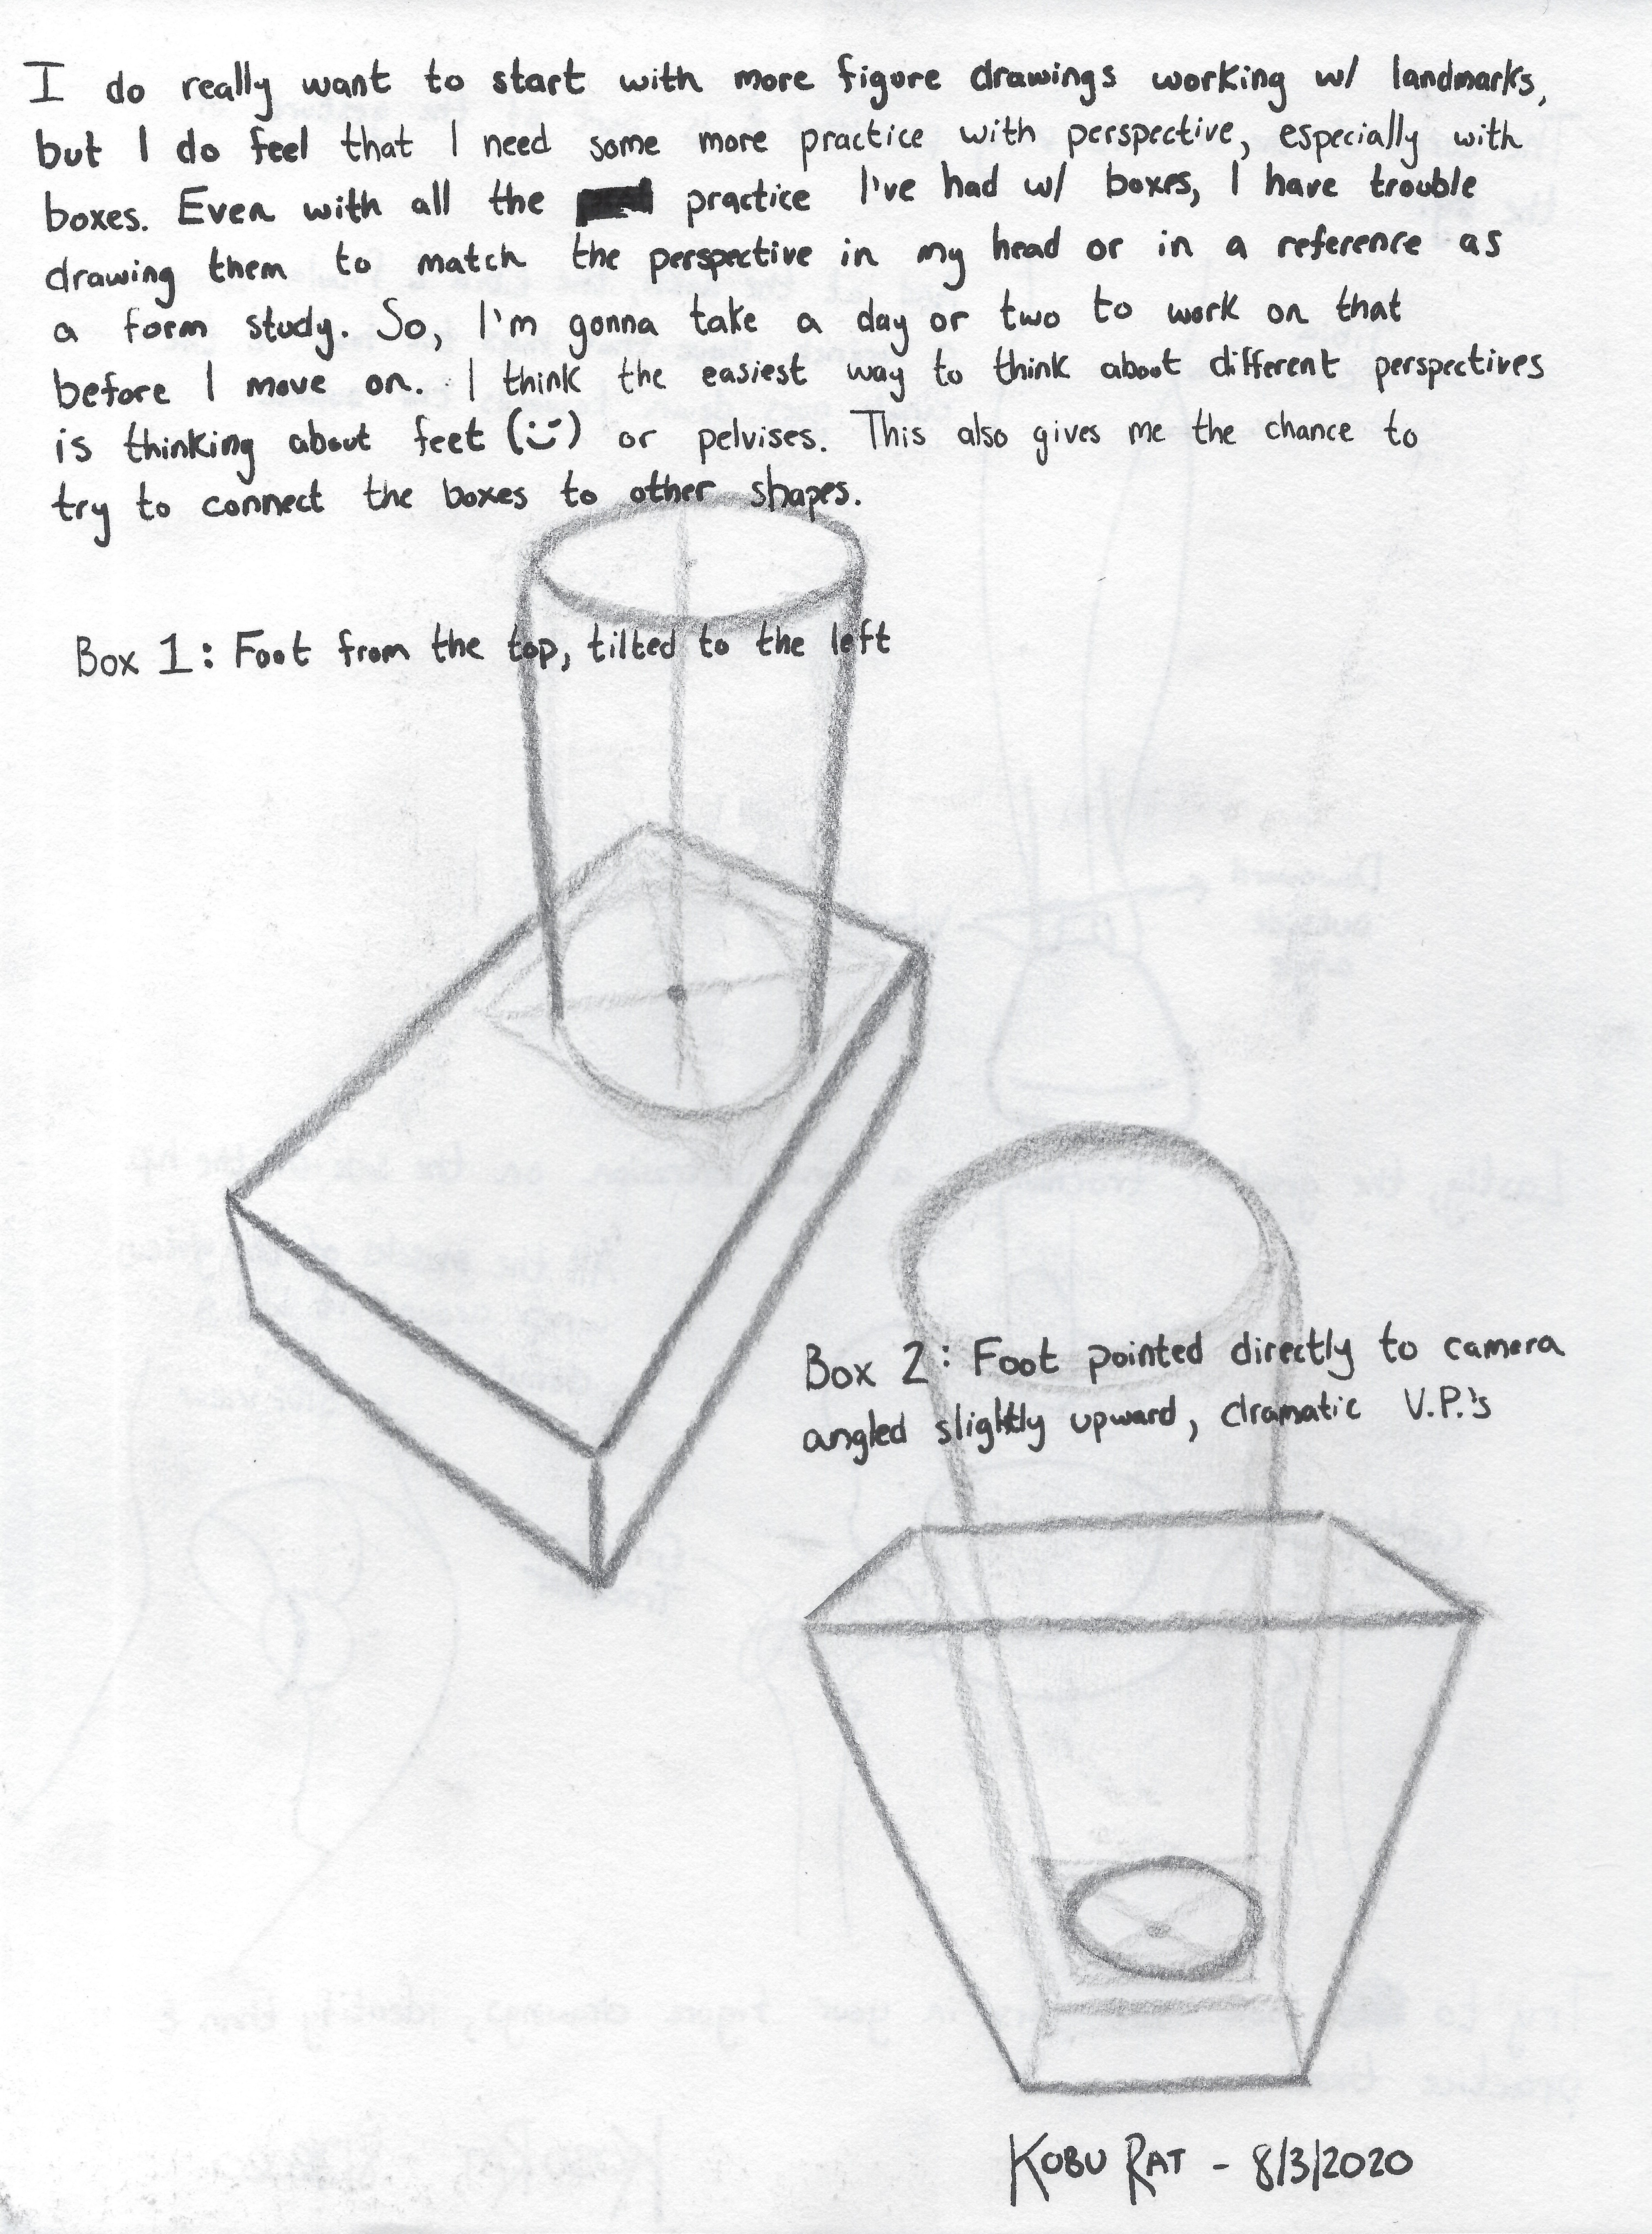 I do really want to start with more figure drawings working w/ landmarks,
but I do feel that I need some more practice with perspective, especially with
boxes. Even with all the practice I've had w/ boxes, I have trouble
drawing them to match the perspective in my head or in a reference as
a form study. So, I'm gonna take a day or two to work on that
before I move on. I think the easiest way to think about different perspectives
is thinking about feet (:͝) or pelvises. This also gives me the chance to
try to connect the boxes to other shapes.
Box 1: Foot from the top, tilted to the left
Box 2: Foot pointed directly to camera
angled slightly upward, dramatic V.P.'s
KOBU RAT - 8/3/2020